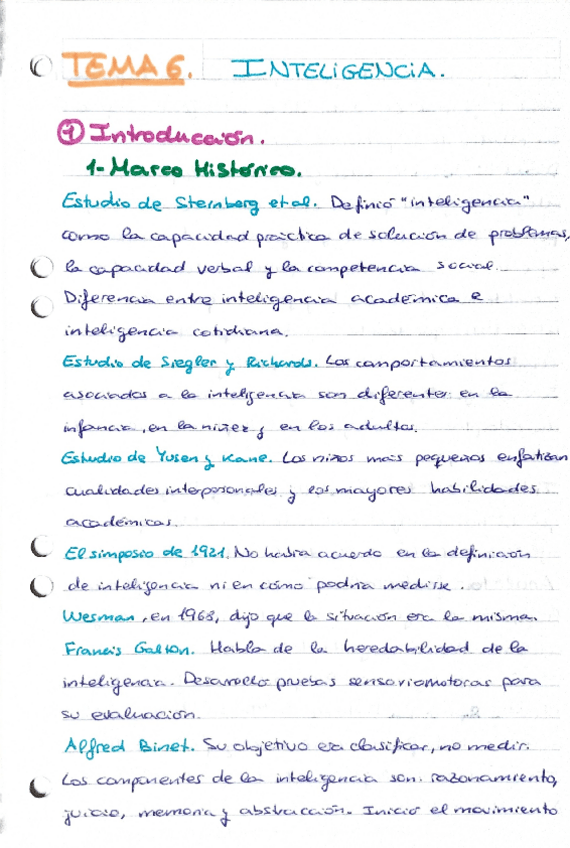 TEMA 6. INTELIGENCIA.
① Introducción.
1- Marco Histórico.
Estudio de Sternberg et al. Definió "inteligencia"
como la capacidad práctica de solución de problemas,
la capacidad verbal y la competencia social.
Diferencia entre inteligencia académica e
inteligencia cotidiana.
Estudio de Siegler y Richards. Los comportamientos
asociados a la inteligencia son diferentes en la
infancia, en la niñez y en los adultos.
Estudio de Yusen y Kane. Los niños más pequeños enfatizan
cualidades interpersonales y los mayores habilidades
académicas.
El simposio de 1921. No había acuerdo en la definición
de inteligencia ni en cómo podría medirse.
Wesman, en 1968, dijo que la situación era la misma.
Francis Galton. Habla de la heredabilidad de la
inteligencia. Desarrolló pruebas sensoriomotoras para
su evaluación.
Alfred Binet. Su objetivo era clasificar, no medir.
Los componentes de la inteligencia son: razonamiento,
juicio, memoria y abstracción. Inició el movimiento